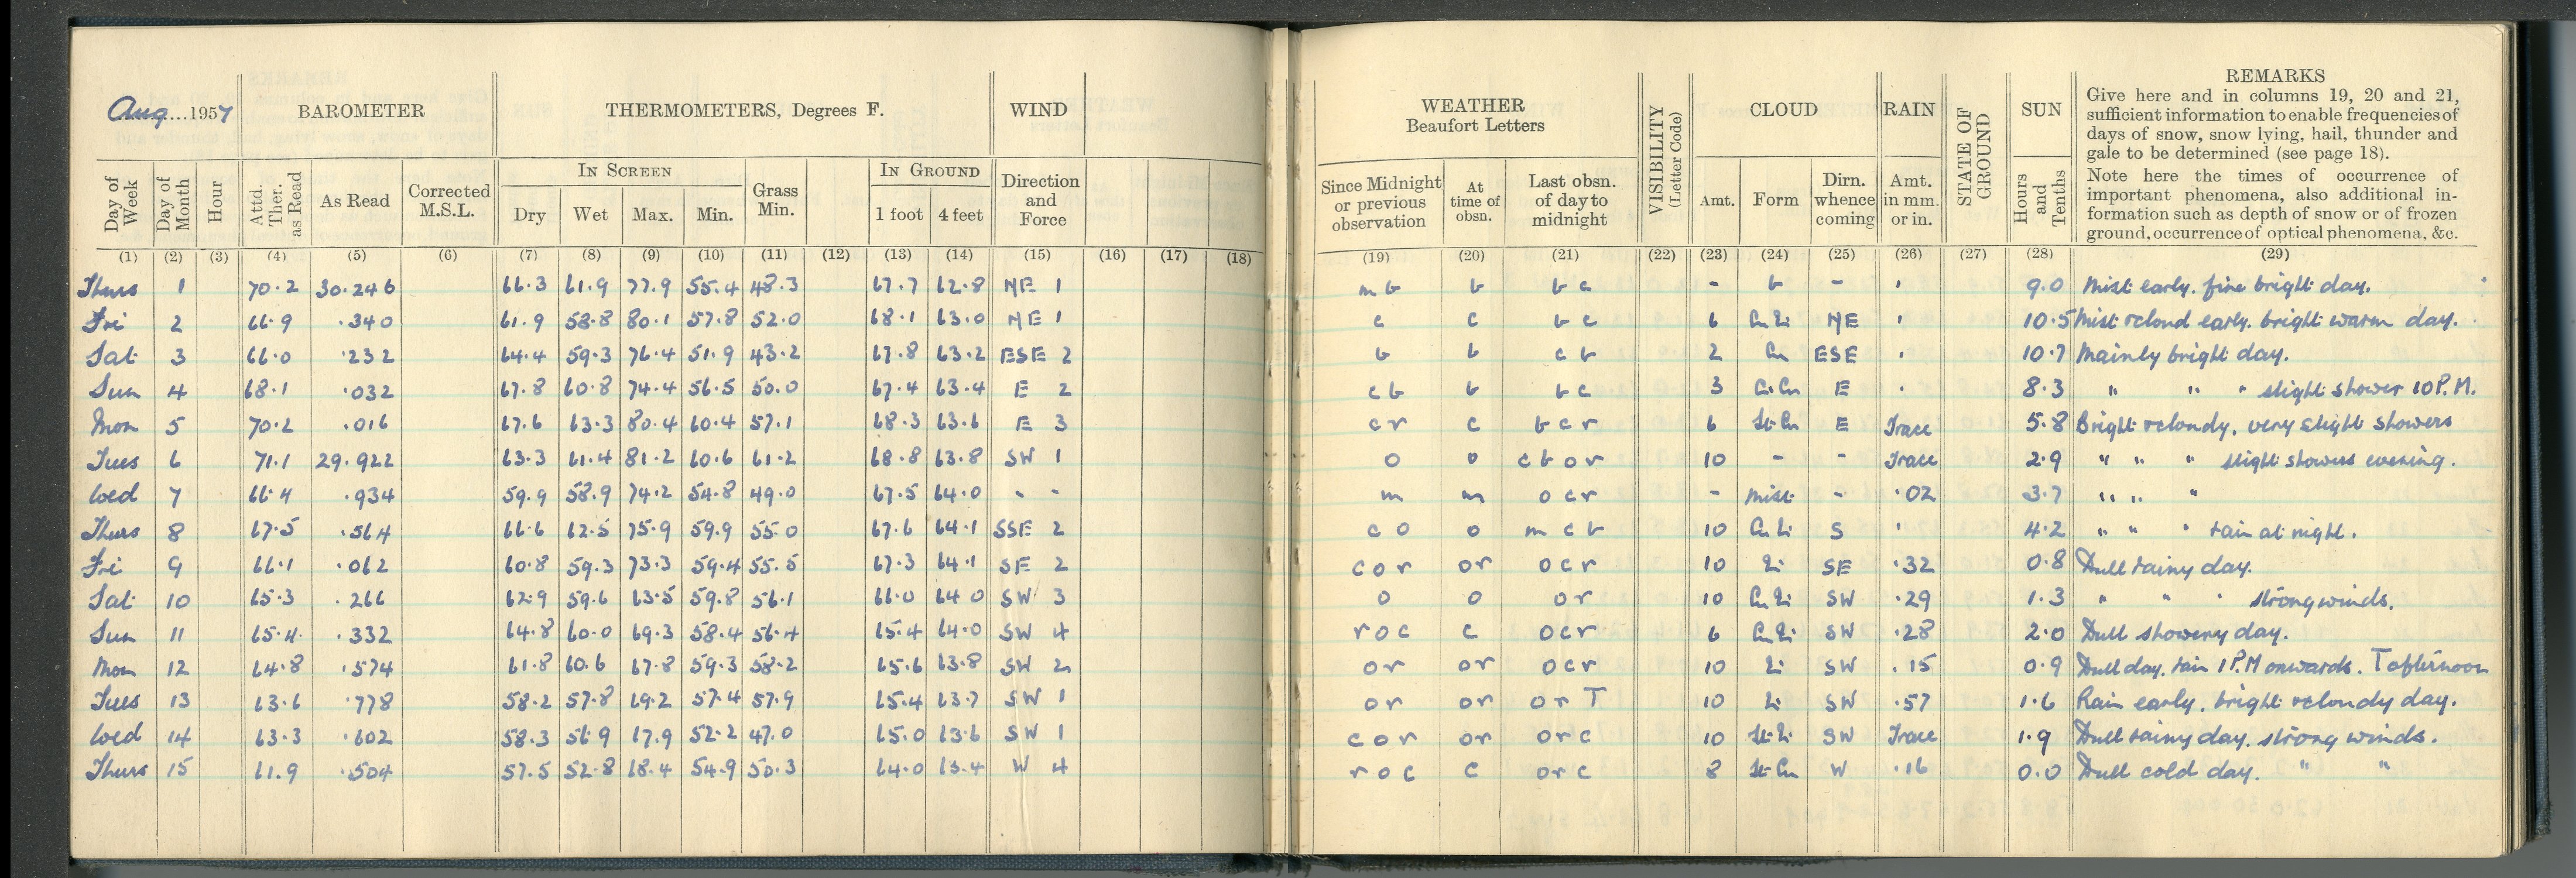 Aug...1957 BAROMETER THERMOMETERS, Degrees F. WIND WEATHER Beaufort Letters VISIBILITY (Letter Code) CLOUD RAIN STATE OF GROUND SUN REMARKS
Give here and in columns 19, 20 and 21,
sufficient information to enable frequencies of
days of snow, snow lying, hail, thunder and
gale to be determined (see page 18).
Note here the times of occurrence of
important phenomena, also additional in-
formation such as depth of snow or of frozen
ground, occurrence of optical phenomena, &c.
IN SCREEN IN GROUND
Day of Week Day of Month Hour Attd. Ther. as Read As Read Corrected M.S.L. Dry Wet Max. Min. Grass Min. 1 foot 4 feet Direction and Force Since Midnight or previous observation At time of obsn. Last obsn. of day to midnight Amt. Form Dirn. whence coming Amt. in mm. or in. Hours and Tenths
(1) (2) (3) (4) (5) (6) (7) (8) (9) (10) (11) (12) (13) (14) (15) (16) (17) (18) (19) (20) (21) (22) (23) (24) (25) (26) (27) (28) (29)
Thurs 1 70.2 30.246 66.3 61.9 77.9 55.4 48.3 67.7 62.8 NE 1 m b b b c - b - . 9.0 Mist early. fine bright day.
Fri 2 66.9 .340 61.9 58.8 80.1 57.8 52.0 68.1 63.0 NE 1 c c b c 6 NE . 10.5 Mist & cloud early. bright warm day.
Sat 3 66.0 .232 64.4 59.3 76.4 51.9 43.2 67.8 63.2 ESE 2 b b c b 2 Cu ESE . 10.7 Mainly bright day.
Sun 4 68.1 .032 67.8 60.8 74.4 56.5 50.0 67.4 63.4 E 2 c b b b c 3 Ci Cu E . 8.3 " " " slight shower 10 P.M.
Mon 5 70.2 .016 67.6 63.3 80.4 60.4 57.1 68.3 63.6 E 3 c r c b c r 6 St Cu E Trace 5.8 Bright & cloudy, very slight showers
Tues 6 71.1 29.922 63.3 61.4 81.2 60.6 61.2 68.8 63.8 SW 1 o o c b o r 10 - - Trace 2.9 " " " slight showers evening.
Wed 7 66.4 .934 59.9 58.9 74.2 54.8 49.0 67.5 64.0 - - m m o c r - Mist - .02 3.7 " " "
Thurs 8 67.5 .564 66.6 62.5 75.9 59.9 55.0 67.6 64.1 SSE 2 c o o m c b 10 S . 4.2 " " " rain at night.
Fri 9 66.1 .062 60.8 59.3 73.3 59.4 55.5 67.3 64.1 SE 2 c o r o r o c r 10 SE .32 0.8 Dull rainy day.
Sat 10 65.3 .266 62.9 59.6 63.5 59.8 56.1 66.0 64.0 SW 3 o o o r 10 SW .29 1.3 " " " strong winds.
Sun 11 65.4 .332 64.8 60.0 69.3 58.4 56.4 65.4 64.0 SW 4 r o c c o c r 6 SW .28 2.0 Dull showery day.
Mon 12 64.8 .574 61.8 60.6 67.8 59.3 58.2 65.6 63.8 SW 2 o r o r o c r 10 SW .15 0.9 Dull day. rain 1 P.M onwards. T afternoon
Tues 13 63.6 .778 58.2 57.8 69.2 57.4 57.9 65.4 63.7 SW 1 o r o r o r T 10 SW .57 1.6 Rain early. bright & cloudy day.
Wed 14 63.3 .602 58.3 56.9 67.9 52.2 47.0 65.0 63.6 SW 1 c o r o r o r c 10 SW Trace 1.9 Dull rainy day. strong winds.
Thurs 15 61.9 .504 57.5 52.8 68.4 54.9 50.3 64.0 63.4 W 4 r o c c o r c 8 St Cu W .16 0.0 Dull cold day. " "